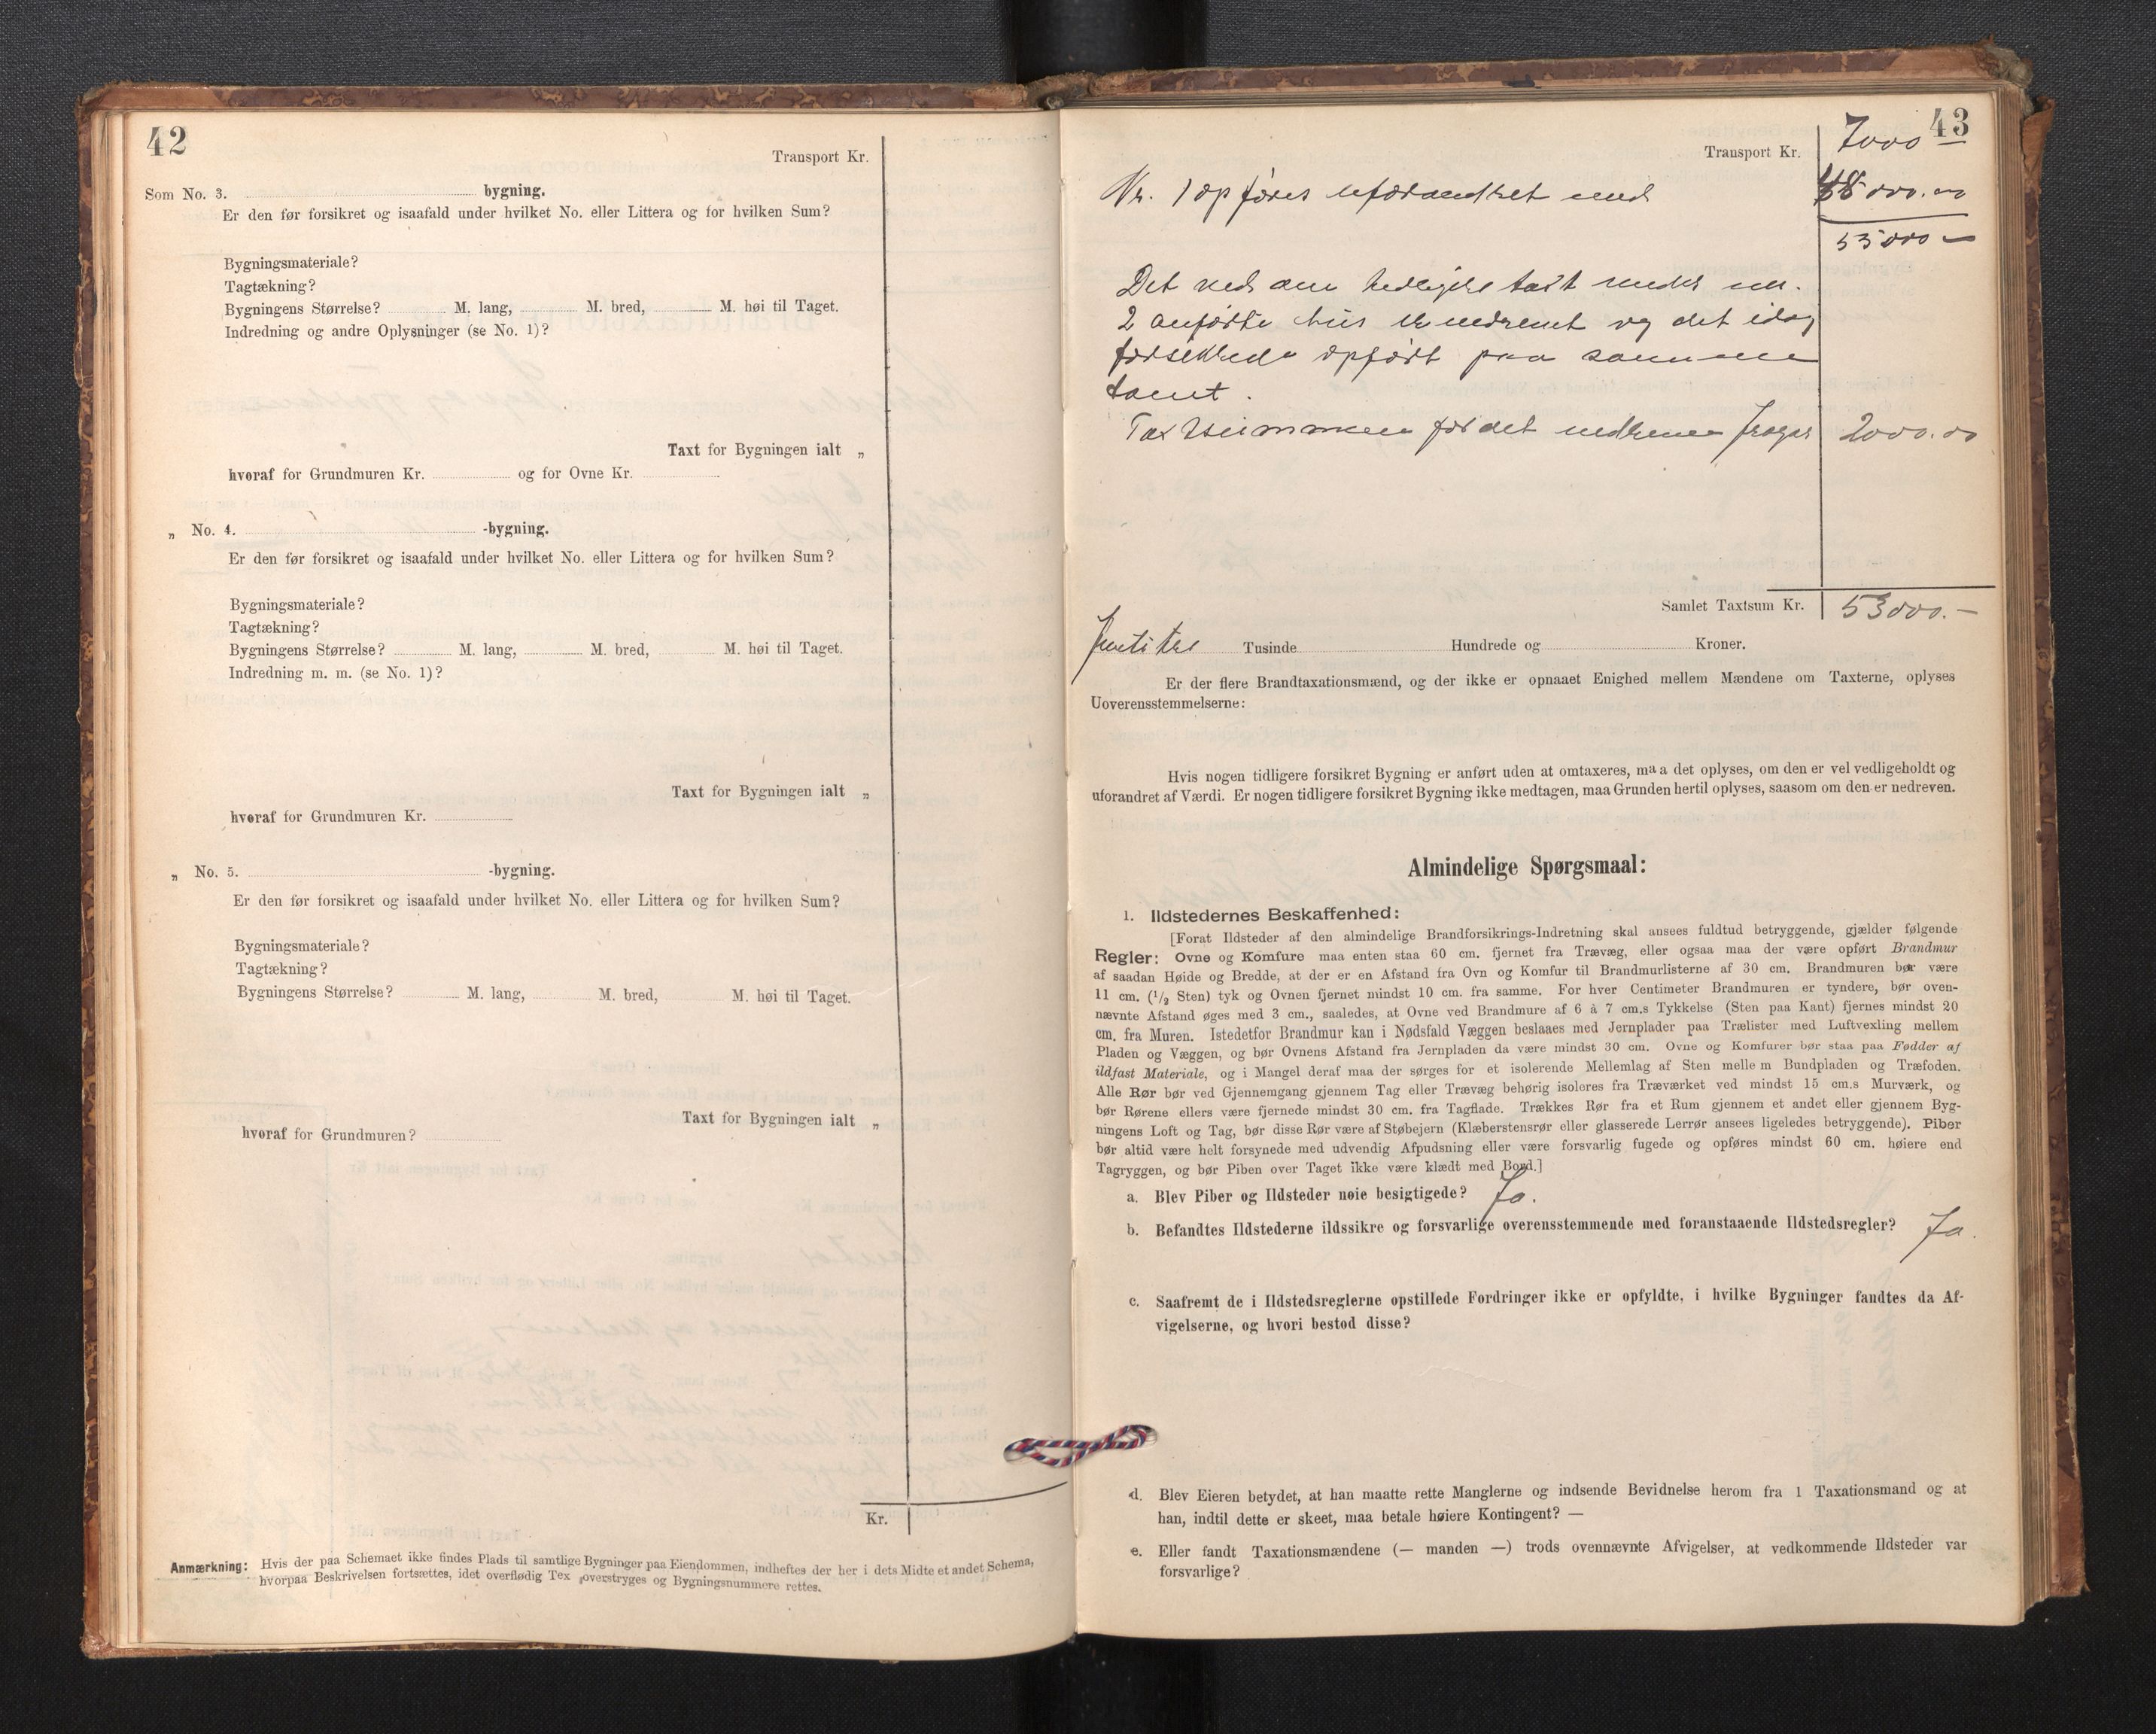 42
Transport Kr.
Som No. 3. bygning.
Er den før forsikret og isaafald under hvilket No. eller Littera og for hvilken Sum?
Bygningsmateriale?
Tagtækning?
Bygningens Størrelse? M. lang, M. bred, M. høi til Taget.
Indredning og andre Oplysninger (se No. 1)?
Taxt for Bygningen ialt „
hvoraf for Grundmuren Kr. og for Ovne Kr.
„ No. 4. -bygning.
Er den før forsikret og isaafald under hvilket No. eller Littera og for hvilken Sum?
Bygningsmateriale?
Tagtækning?
Bygningens Størrelse? M. lang, M. bred, M. høi til Taget.
Indredning m. m. (se No. 1)?
Taxt for Bygningen ialt „
hvoraf for Grundmuren Kr.
„ No. 5. -bygning.
Er den før forsikret og isaafald under hvilket No. eller Littera og for hvilken Sum?
Bygningsmateriale?
Tagtækning?
Bygningens Størrelse? M. lang, M. bred, M. høi til Taget.
Taxt for Bygningen ialt „
hvoraf for Grundmuren?
Kr.
Anmærkning: Hvis der paa Schemaet ikke findes Plads til samtlige Bygninger paa Eiendommen, indheftes der her i dets Midte et andet Schema,
hvorpaa Beskrivelsen fortsættes, idet overflødig Tex overstryges og Bygningsnummere rettes.
43
Transport Kr. 7000
Nr. 1 opføres uforandret med
53000 –
Det ved den tidligere taxt under no.
2 anførte hus er nedrevet og det idag
forsikrede opført paa samme
tomt.
Taxtsummen for det nedrevne 2000.00
Samlet Taxtsum Kr. 53000. –
Femti tre Tusinde Hundrede og Kroner.
Er der flere Brandtaxationsmænd, og der ikke er opnaaet Enighed mellem Mændene om Taxterne, oplyses
Uoverensstemmelserne:
Hvis nogen tidligere forsikret Bygning er anført uden at omtaxeres, maa det oplyses, om den er vel vedligeholdt og
uforandret af Værdi. Er nogen tidligere forsikret Bygning ikke medtagen, maa Grunden hertil oplyses, saasom om den er nedreven.
Almindelige Spørgsmaal:
1. Ildstedernes Beskaffenhed:
[Forat Ildsteder af den almindelige Brandforsikrings-Indretning skal ansees fuldtud betryggende, gjælder følgende
Regler: Ovne og Komfure maa enten staa 60 cm. fjernet fra Trævæg, eller ogsaa maa der være opført Brandmur
af saadan Høide og Bredde, at der er en Afstand fra Ovn og Komfur til Brandmurlisterne af 30 cm. Brandmuren bør være
11 cm. (1/2 Sten) tyk og Ovnen fjernet mindst 10 cm. fra samme. For hver Centimeter Brandmuren er tyndere, bør oven-
nævnte Afstand øges med 3 cm., saaledes, at Ovne ved Brandmure af 6 à 7 cm.s Tykkelse (Sten paa Kant) fjernes mindst 20
cm. fra Muren. Istedetfor Brandmur kan i Nødsfald Væggen beslaaes med Jernplader paa Trælister med Luftvexling mellem
Pladen og Væggen, og bør Ovnens Afstand fra Jernpladen da være mindst 30 cm. Ovne og Komfurer bør staa paa Fødder af
ildfast Materiale, og i Mangel deraf maa der sørges for et isolerende Mellemlag af Sten mellem Bundpladen og Træfoden.
Alle Rør bør ved Gjennemgang gjennem Tag eller Trævæg behørig isoleres fra Træværket ved mindst 15 cm.s Murværk, og
bør Rørene ellers være fjernede mindst 30 cm. fra Tagflade. Trækkes Rør fra et Rum gjennem et andet eller gjennem Byg-
ningens Loft og Tag, bør disse Rør være af Støbejern (Klæberstensrør eller glasserede Lerrør ansees ligeledes betryggende). Piber
bør altid være helt forsynede med udvendig Afpudsning eller være forsvarlig fugede og opføres mindst 60 cm. høiere end
Tagryggen, og bør Piben over Taget ikke være klædt med Bord.]
a. Blev Piber og Ildsteder nøie besigtigede? Ja.
b. Befandtes Ildstederne ildssikre og forsvarlige overensstemmende med foranstaaende Ildstedsregler? Ja.
c. Saafremt de i Ildstedsreglerne opstillede Fordringer ikke er opfyldte, i hvilke Bygninger fandtes da Af-
vigelserne, og hvori bestod disse?
d. Blev Eieren betydet, at han maatte rette Manglerne og indsende Bevidnelse herom fra 1 Taxationsmand og at
han, indtil dette er skeet, maa betale høiere Kontingent? —
e. Eller fandt Taxationsmændene (— manden —) trods ovennævnte Afvigelser, at vedkommende Ildsteder var
forsvarlige?